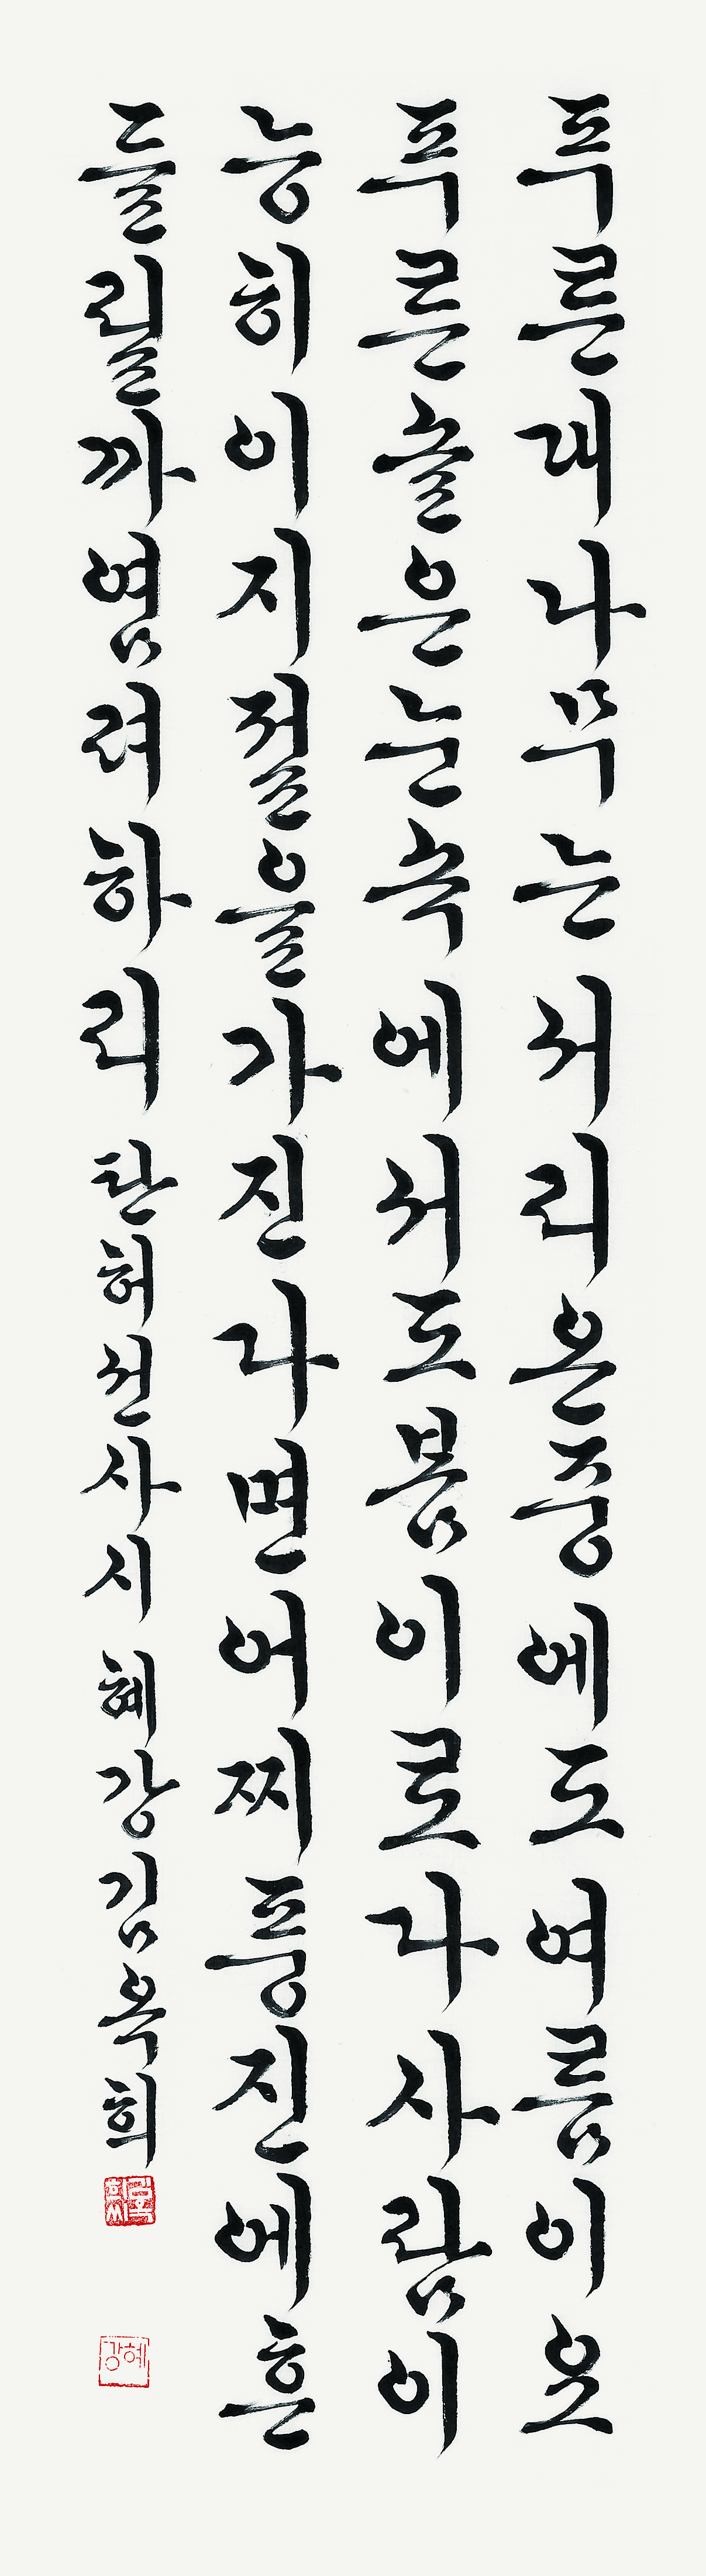 푸른대나무는서리온중에도여름이요
푸른솔은눈속에서도봄이로다사람이
능히이지절을가진다면어찌풍진에흔
들릴까염려하리 탄허선사시 혜강김옥희
혜강